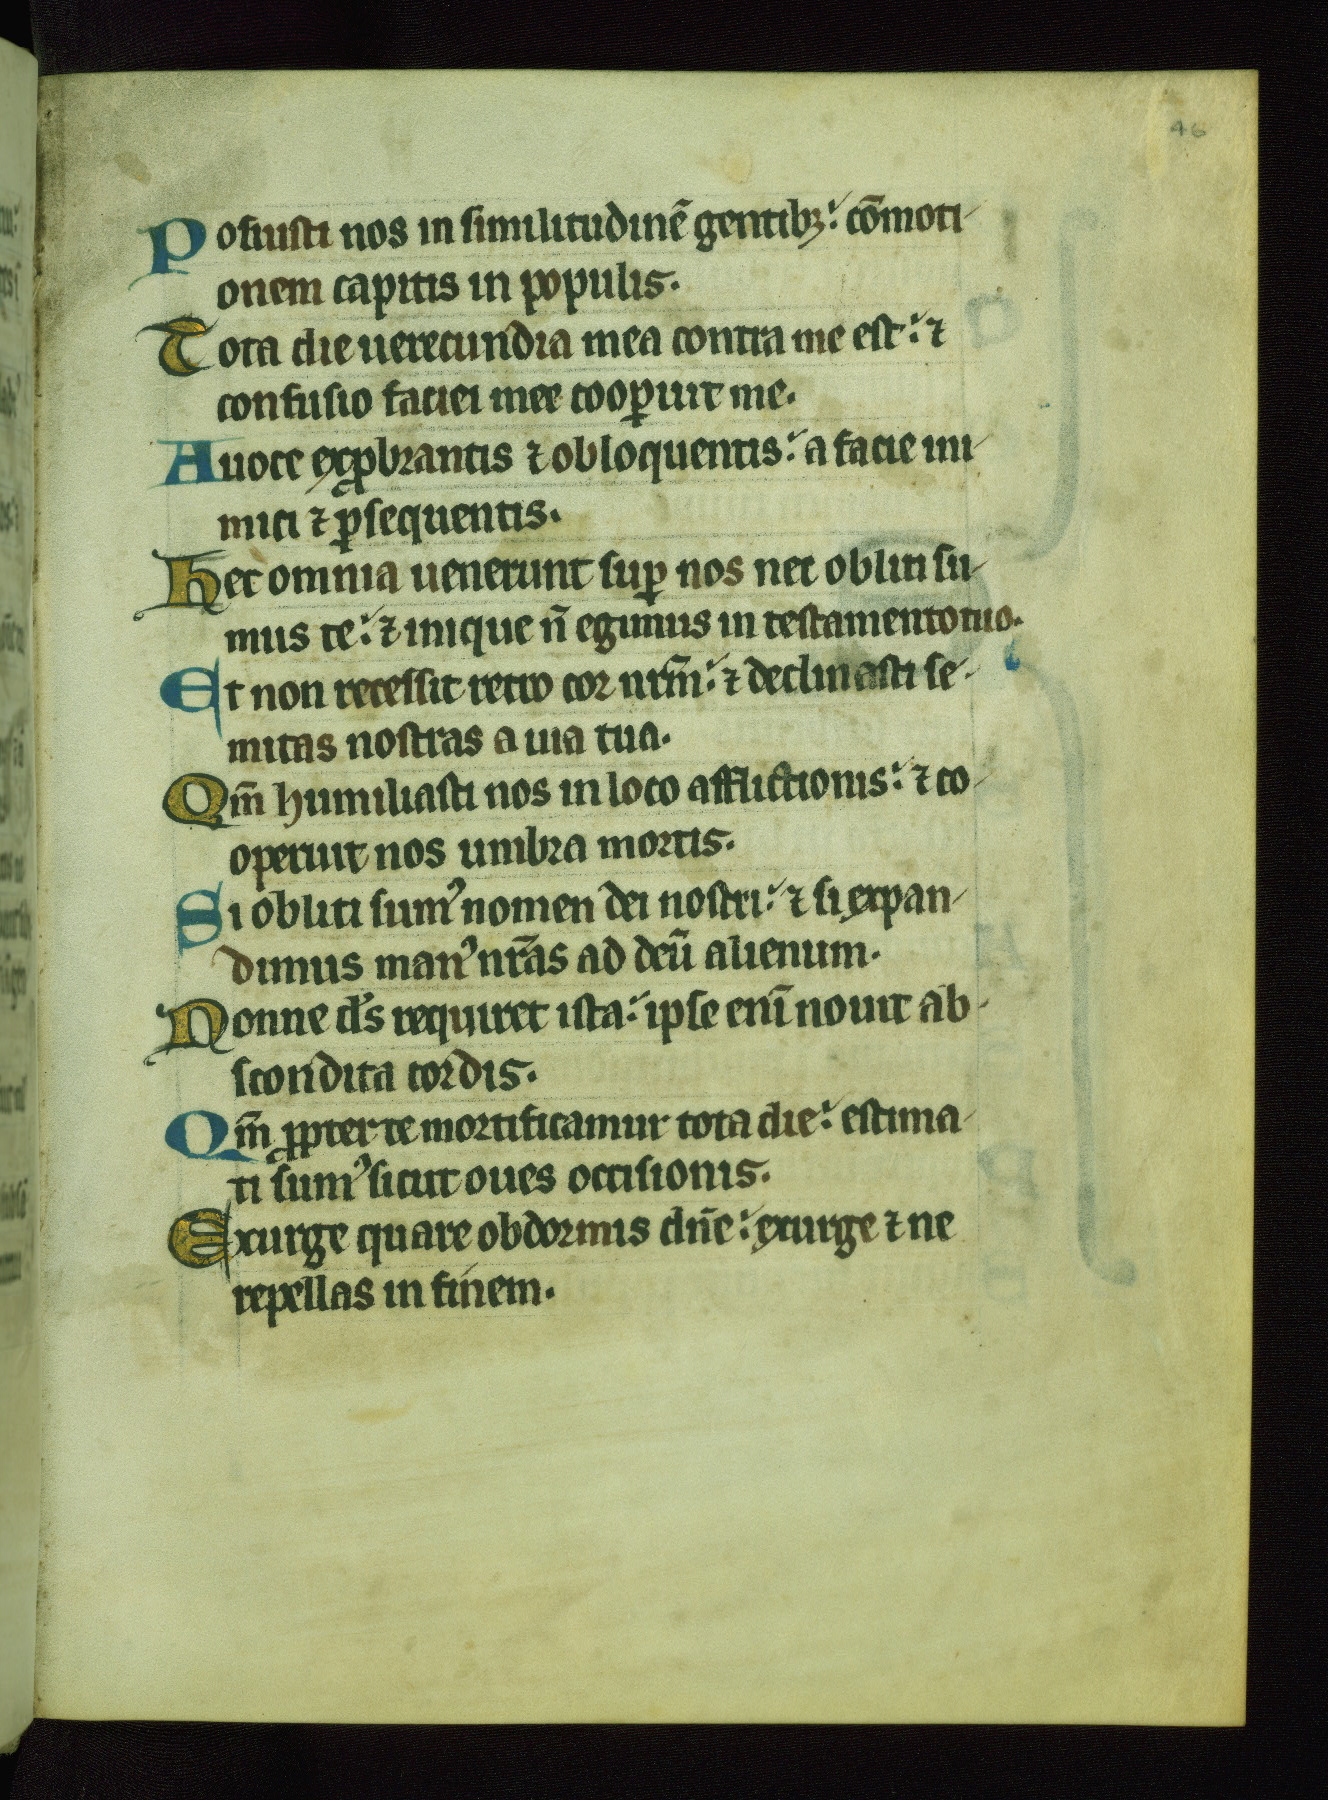 46
Posuisti nos in similitudinē gentibꝫ: cōmoti-
onem capitis in populis.
Tota die uerecundia mea contra me est: ⁊
confusio faciei mee cooꝑuit me.
A uoce exꝓbrantis ⁊ obloquentis: a facie ini-
mici ⁊ ꝑsequentis.
Hec omnia uenerunt suꝑ nos nec obliti su-
mus te: ⁊ inique n̄ egimus in testamento tuo.
Et non recessit retro cor nrm̄: ⁊ declinasti se-
mitas nostras a uia tua.
Qm̄ humiliasti nos in loco afflictionis: ⁊ co-
operuit nos umbra mortis.
Si obliti sumꝰ nomen dei nostri: ⁊ si expan-
dimus manꝰ nrās ad deū alienum.
Nonne d̄s requiret ista: ipse enī nouit ab-
scondita cordis.
Qm̄ ꝓpter te mortificamur tota die: estima-
ti sumꝰ sicut oues occisionis.
Exurge quare obdormis dn̄e: exurge ⁊ ne
repellas in finem.